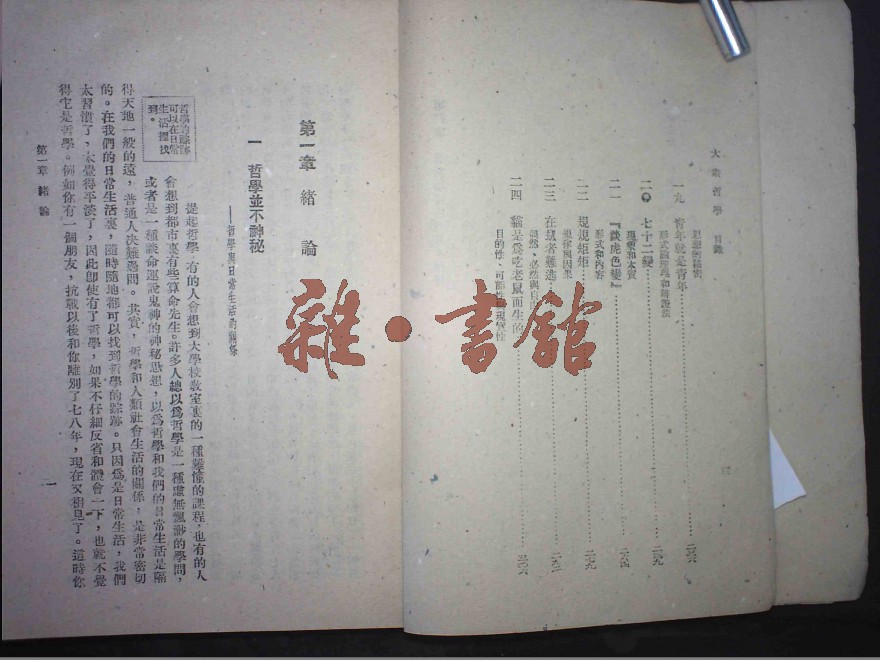 大眾哲學 目錄
思想的秘密
一九 青年就是青年
形式論理和辯證法
二〇 七十二變
現象和本質
二一 『談虎色變』
形式和內容
二二 規規矩矩
規律與因果
二三 在劫者難逃
偶然、必然與自由
二四 貓是為吃老鼠而生的
目的性、可能性與現實性
第一章 緒論
一 哲學並不神秘
——哲學與日常生活的關係
哲學的踪跡
可以在日常
生活裡找
到。
提起哲學，有的人會想到大學校教室裏的一種難懂的課程，也有的人
會想到都市裏有些算命先生。許多人總以爲哲學是一種虛無飄渺的學問，
或者是一種談命運設鬼神的神秘思想，以爲哲學和我們的日常生活是隔
得天地一般的遠，普通人决難過問。其實，哲學和人類社會生活的關係，是非常密切
的。在我們的日常生活裏，隨時隨地都可以找到哲學的踪跡。只因爲是日常生活，我們
太習慣了，太覺得平淡了，因此卽使有了哲學，如果不仔細反省和體會一下，也就不覺
得它是哲學。例如你有一個朋友，抗戰以後和你離別了七八年，現在又相見了。這時你
第一章 緒論
一
雜·書館